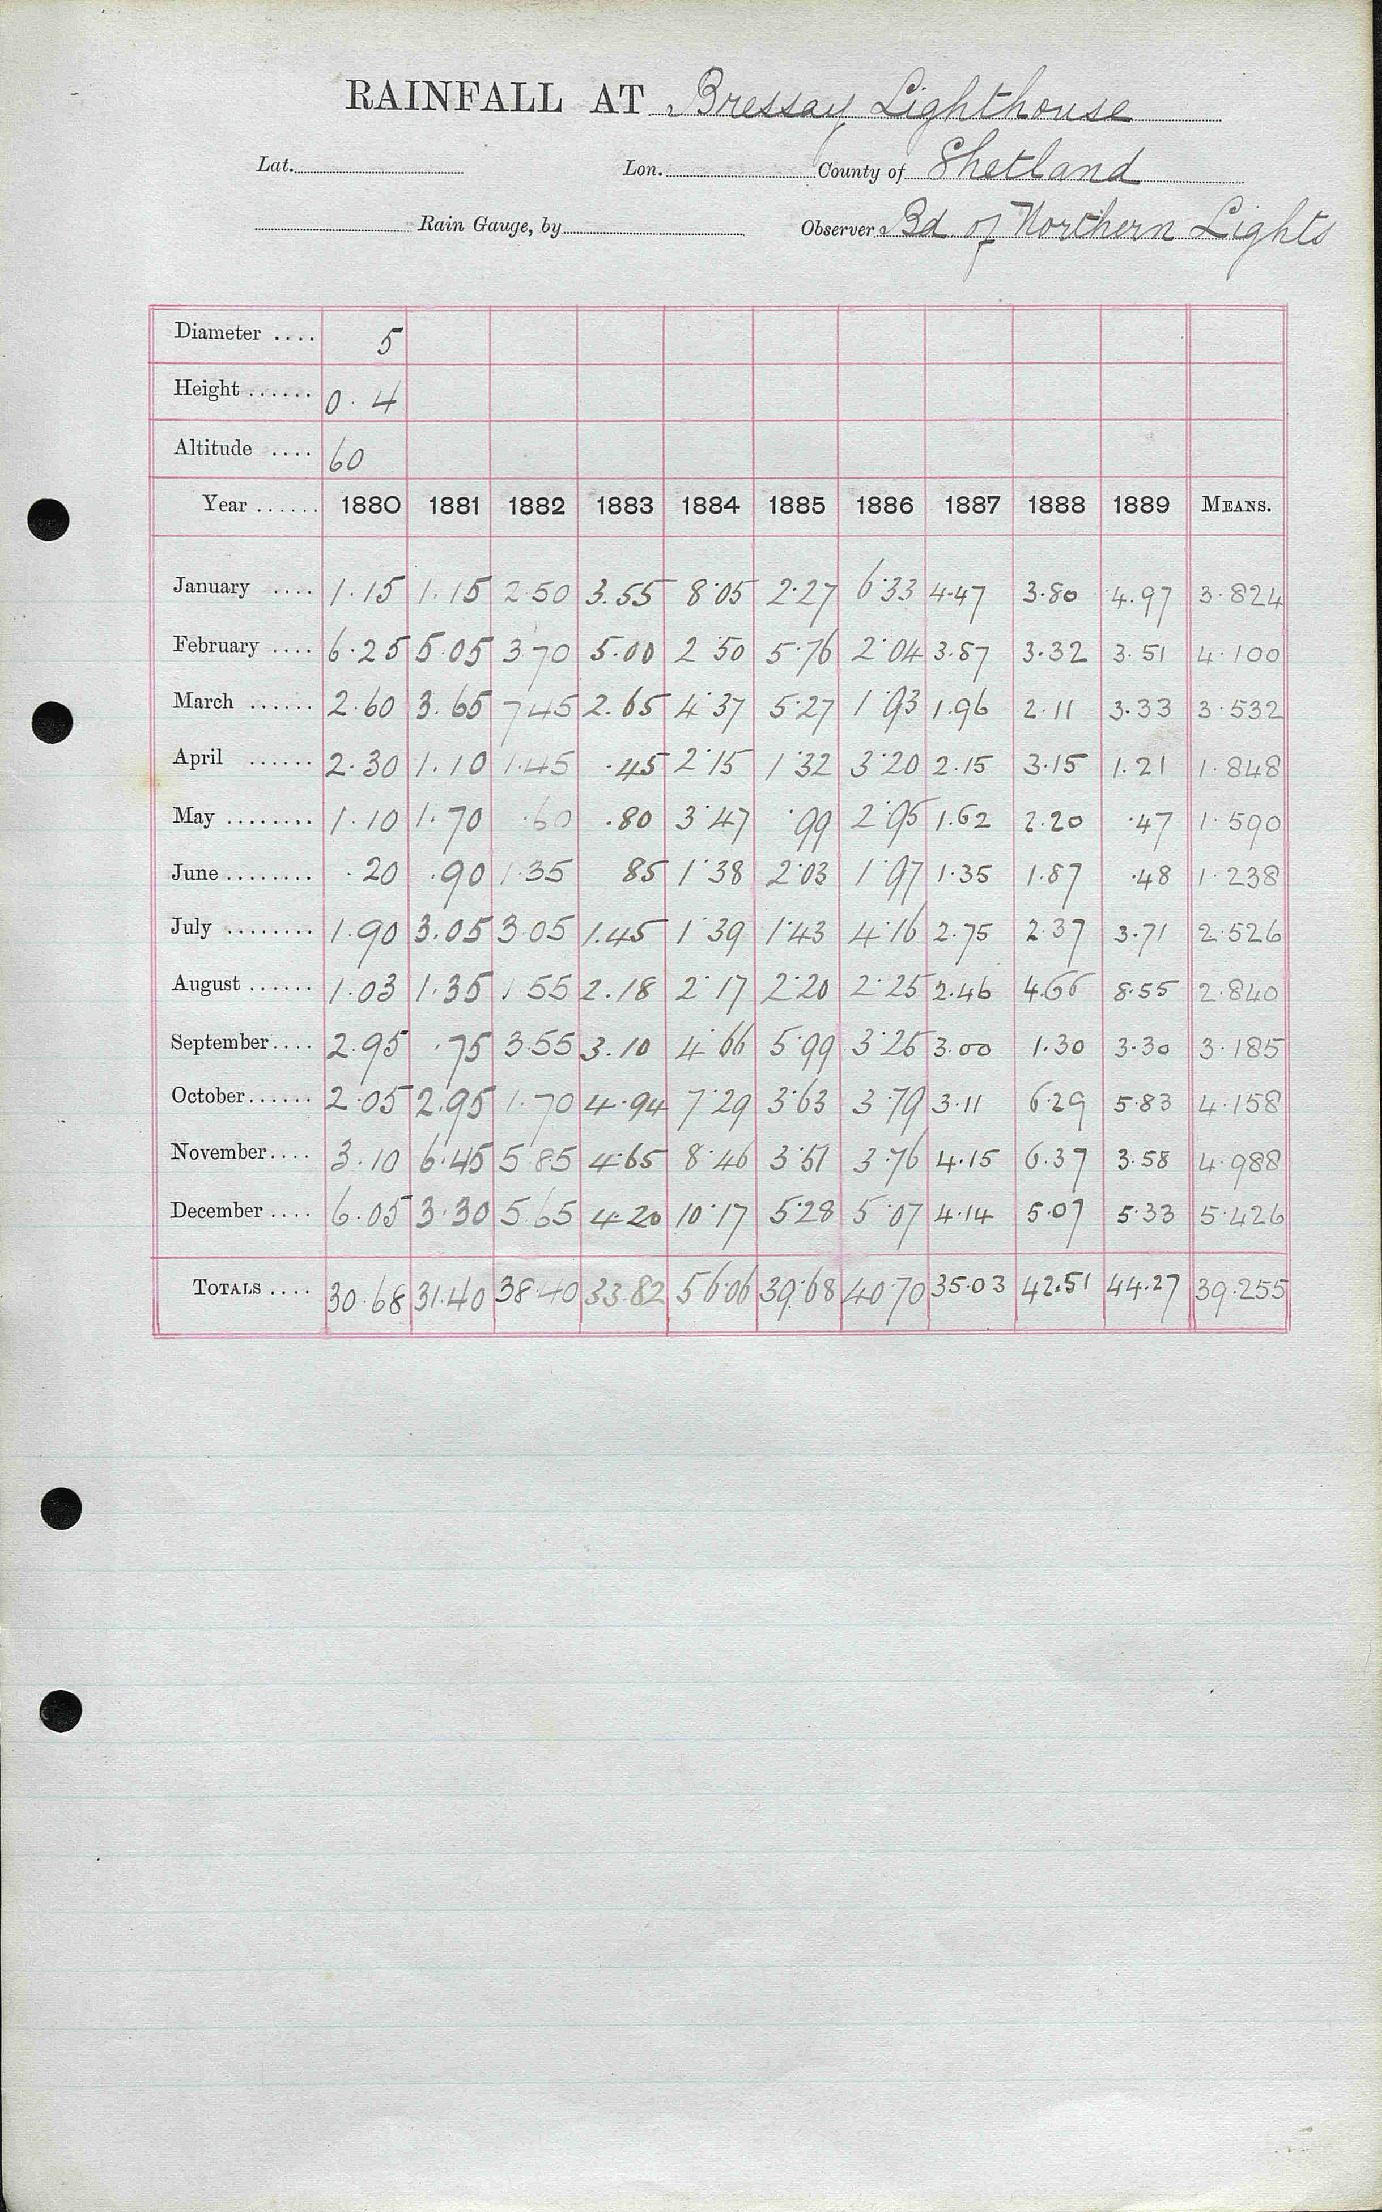 RAINFALL AT Bressay Lighthouse
Lat. Lon. County of Shetland
Rain Gauge, by Observer Bd of Northern Lights
Diameter .... 5
Height ...... 0.4
Altitude .... 60
Year ...... 1880 1881 1882 1883 1884 1885 1886 1887 1888 1889 MEANS.
January .... 1.15 1.15 2.50 3.55 8.05 2.27 6.33 4.47 3.80 4.97 3.824
February .... 6.25 5.05 3.70 5.00 2.50 5.76 2.04 3.87 3.32 3.51 4.100
March ...... 2.60 3.65 7.45 2.65 4.37 5.27 1.93 1.96 2.11 3.33 3.532
April ...... 2.30 1.10 1.45 .45 2.15 1.32 3.20 2.15 3.15 1.21 1.848
May ........ 1.10 1.70 .60 .80 3.47 .99 2.95 1.62 2.20 .47 1.590
June ........ .20 .90 1.35 85 1.38 2.03 1.97 1.35 1.87 .48 1.238
July ........ 1.90 3.05 3.05 1.45 1.39 1.43 4.16 2.75 2.37 3.71 2.526
August ...... 1.03 1.35 1.55 2.18 2.17 2.20 2.25 2.46 4.66 8.55 2.840
September .... 2.95 .75 3.55 3.10 4.66 5.99 3.25 3.00 1.30 3.30 3.185
October ...... 2.05 2.95 1.70 4.94 7.29 3.63 3.79 3.11 6.29 5.83 4.158
November .... 3.10 6.45 5.85 4.65 8.46 3.51 3.76 4.15 6.37 3.58 4.988
December .... 6.05 3.30 5.65 4.20 10.17 5.28 5.07 4.14 5.07 5.33 5.426
TOTALS .... 30.68 31.40 38.40 33.82 56.06 39.68 40.70 35.03 42.51 44.27 39.255